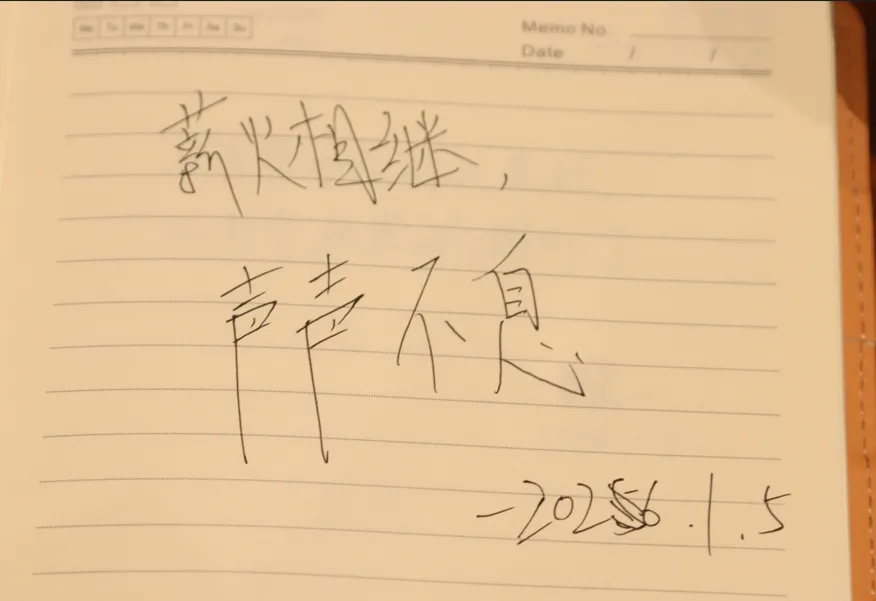 Mo Tu We Th Fr Sa Su
Memo No.
Date / /
薪火相继，
声声不息
-2026.1.5